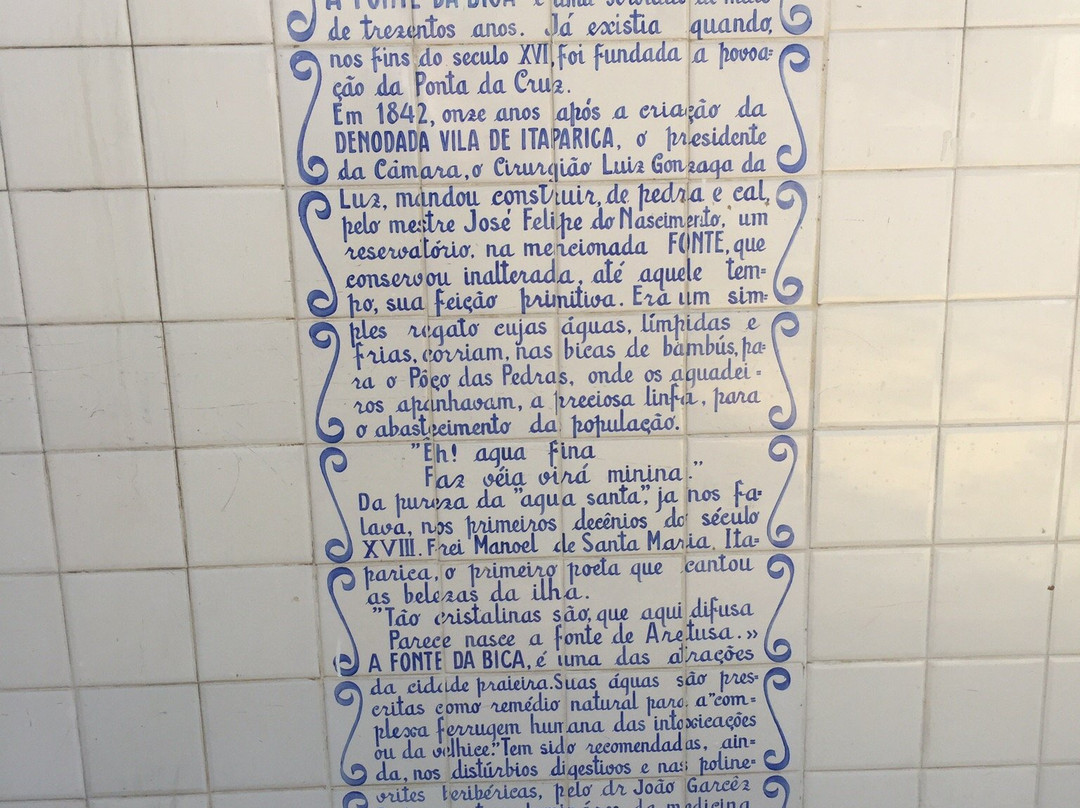 A FONTE DA BICA é uma
de trezentos anos. Já existia quando,
nos fins do seculo XVI, foi fundada a povoa=
ção da Ponta da Cruz.
Em 1842, onze anos após a criação da
DENODADA VILA DE ITAPARICA, o presidente
da Câmara, o Cirurgião Luiz Gonzaga da
Luz, mandou construir, de pedra e cal,
pelo mestre José Felipe do Nascimento, um
reservatório. na mencionada FONTE, que
conservou inalterada, até aquele tem=
po, sua feição primitiva. Era um sim=
ples regato cujas águas, límpidas e
frias, corriam, nas bicas de bambús, pa=
ra o Pôço das Pedras, onde os aguadei=
ros apanhavam, a preciosa linfa, para
o abastecimento da população.
"Êh! agua fina
Faz véia virá minina."
Da pureza da "agua santa", ja nos fa=
lava, nos primeiros decênios do século
XVIII. Frei Manoel de Santa Maria. Ita=
parica, o primeiro poeta que cantou
as belezas da ilha.
"Tão cristalinas são, que aqui difusa
Parece nasce a fonte de Aretusa.»
A FONTE DA BICA, é uma das atrações
da cidade praieira. Suas águas são pres=
critas como remédio natural para a "com=
plexa ferrugem humana das intoxicações
ou da velhice". Tem sido recomendadas, ain=
da, nos distúrbios digestivos e nas poline=
vrites beribéricas, pelo dr João Garcêz
da medicina